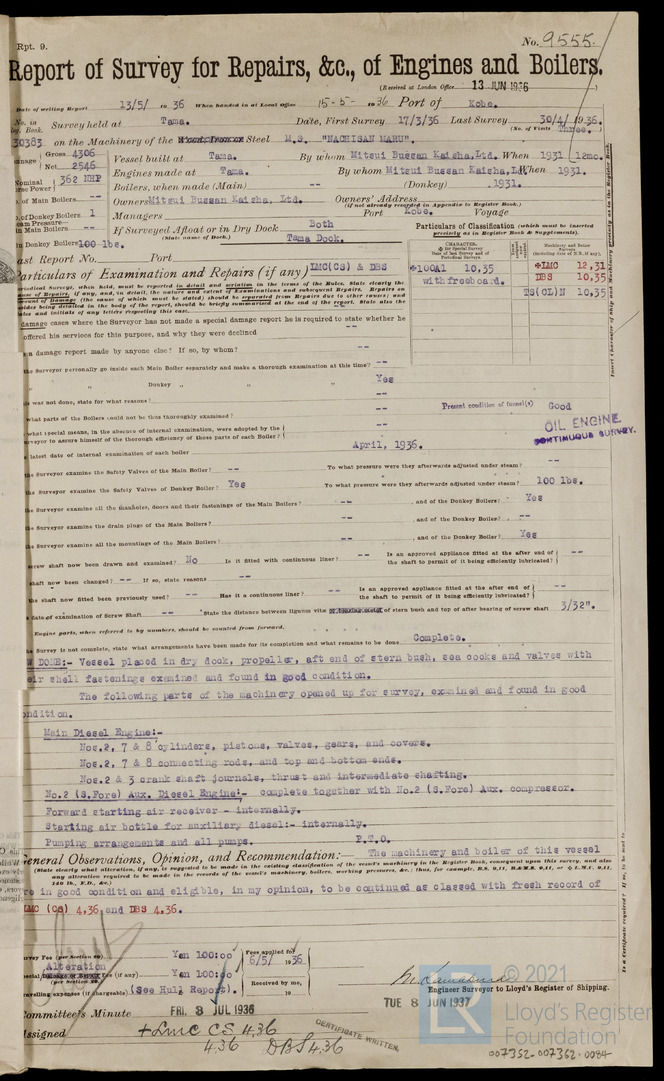 Rpt. 9.
No. 9555.
Report of Survey for Repairs, &c., of Engines and Boilers.
(Received at London Office 13 JUN 1936)
Date of writing Report 13/5/ 19 36 When handed in at Local Office 15-5- 19 36 Port of Kobe.
No. in Survey held at Tama. Date, First Survey 17/3/36 Last Survey 30/4/1936.
Book. (No. of Visits Three.)
30383 on the Machinery of the Steel M.S. "NACHISAN MARU".
Gross 4306 Vessel built at Tama. By whom Mitsui Bussan Kaisha, Ltd. When 1931 12mo.
Net 2546
Nominal Horse Power 362 NHP Engines made at Tama. By whom Mitsui Bussan Kaisha, Ltd. When 1931.
of Main Boilers -- Boilers, when made (Main) -- (Donkey) 1931.
of Donkey Boilers 1 Owners Mitsui Bussan Kaisha, Ltd. Owners' Address
(if not already recorded in Appendix to Register Book.)
Managers Port Kobe. Voyage
in Main Boilers -- If Surveyed Afloat or in Dry Dock Both
(State name of Dock.) Tama Dock.
in Donkey Boilers 100 lbs.
Particulars of Classification (which must be inserted precisely as in Register Book & Supplements).
Last Report No. Port
CHARACTER.
Machinery and Boiler Surveys
✠100A1 10,35 ✠LMC 12,31
with freeboard. DBS 10,35
TS(CL)N 10,35
Particulars of Examination and Repairs (if any) LMC(CS) & DBS
damage cases where the Surveyor has not made a special damage report he is required to state whether he
offered his services for this purpose, and why they were declined --
a damage report made by anyone else? If so, by whom? --
the Surveyor personally go inside each Main Boiler separately and make a thorough examination at this time? --
„ „ Donkey „ „ „ Yes
was not done, state for what reasons? --
what parts of the Boilers could not be thoroughly examined? -- Present condition of funnel(s) Good
what special means, in the absence of internal examination, were adopted by the
Surveyor to assure himself of the thorough efficiency of those parts of each Boiler? --
OIL ENGINE
CONTINUOUS SURVEY.
latest date of internal examination of each boiler April, 1936.
the Surveyor examine the Safety Valves of the Main Boiler? -- To what pressure were they afterwards adjusted under steam? --
the Surveyor examine the Safety Valves of Donkey Boiler? Yes To what pressure were they afterwards adjusted under steam? 100 lbs.
the Surveyor examine all the manholes, doors and their fastenings of the Main Boilers? -- , and of the Donkey Boilers? Yes
the Surveyor examine the drain plugs of the Main Boilers? -- , and of the Donkey Boilers? --
the Surveyor examine all the mountings of the Main Boilers? -- , and of the Donkey Boiler? Yes
screw shaft now been drawn and examined? No Is it fitted with continuous liner? -- Is an approved appliance fitted at the after end of the shaft to permit of it being efficiently lubricated? --
shaft now been changed? -- If so, state reasons --
the shaft now fitted been previously used? -- Has it a continuous liner? -- Is an approved appliance fitted at the after end of the shaft to permit of it being efficiently lubricated? --
date of examination of Screw Shaft -- State the distance between lignum vitæ of stern bush and top of after bearing of screw shaft 3/32".
Engine parts, when referred to by numbers, should be counted from forward.
the Survey is not complete, state what arrangements have been made for its completion and what remains to be done Complete.
DONE:- Vessel placed in dry dock, propeller, aft end of stern bush, sea cocks and valves with
their shell fastenings examined and found in good condition.
The following parts of the machinery opened up for survey, examined and found in good
condition.
Main Diesel Engine:-
Nos.2, 7 & 8 cylinders, pistons, valves, gears, and covers.
Nos.2, 7 & 8 connecting rods, and top and bottom ends.
Nos.2 & 3 crank shaft journals, thrust and intermediate shafting.
No.2 (S.Fore) Aux. Diesel Engine:- complete together with No.2 (S.Fore) Aux. compressor.
Forward starting air receiver - internally.
Starting air bottle for auxiliary diesel:- internally.
Pumping arrangements and all pumps. P.T.O.
General Observations, Opinion, and Recommendation:— The machinery and boiler of this vessel
(State clearly what alteration, if any, is suggested to be made in the existing classification of the vessel's machinery in the Register Book, consequent upon this survey, and also
any alteration required to be made in the records of the vessel's machinery, boilers, working pressures, &c.; thus, for example, B.S. 9,11, B.&M.S. 9,11, or ✠ L.M.C. 9,11,
140 lb., F.D., &c.)
are in good condition and eligible, in my opinion, to be continued as classed with fresh record of
LMC (CS) 4,36 and DBS 4,36.
Survey Fee (per Section 29) Yen 100:00 Fees applied for
Alteration 6/5/ 1936
Special Damage or Repair Fee (if any) Yen 100:00
(per Section 29) Received by me,
Travelling expenses (if chargeable) (See Hull Report). 19
Engineer Surveyor to Lloyd's Register of Shipping.
Committee's Minute FRI. 3 JUL 1936 TUE 8 JUN 1937
Assigned + LMC CS 4.36
4.36 DBS 4.36
CERTIFICATE WRITTEN.
LR
© 2021
Lloyd's Register
Foundation
007352-007362-0084